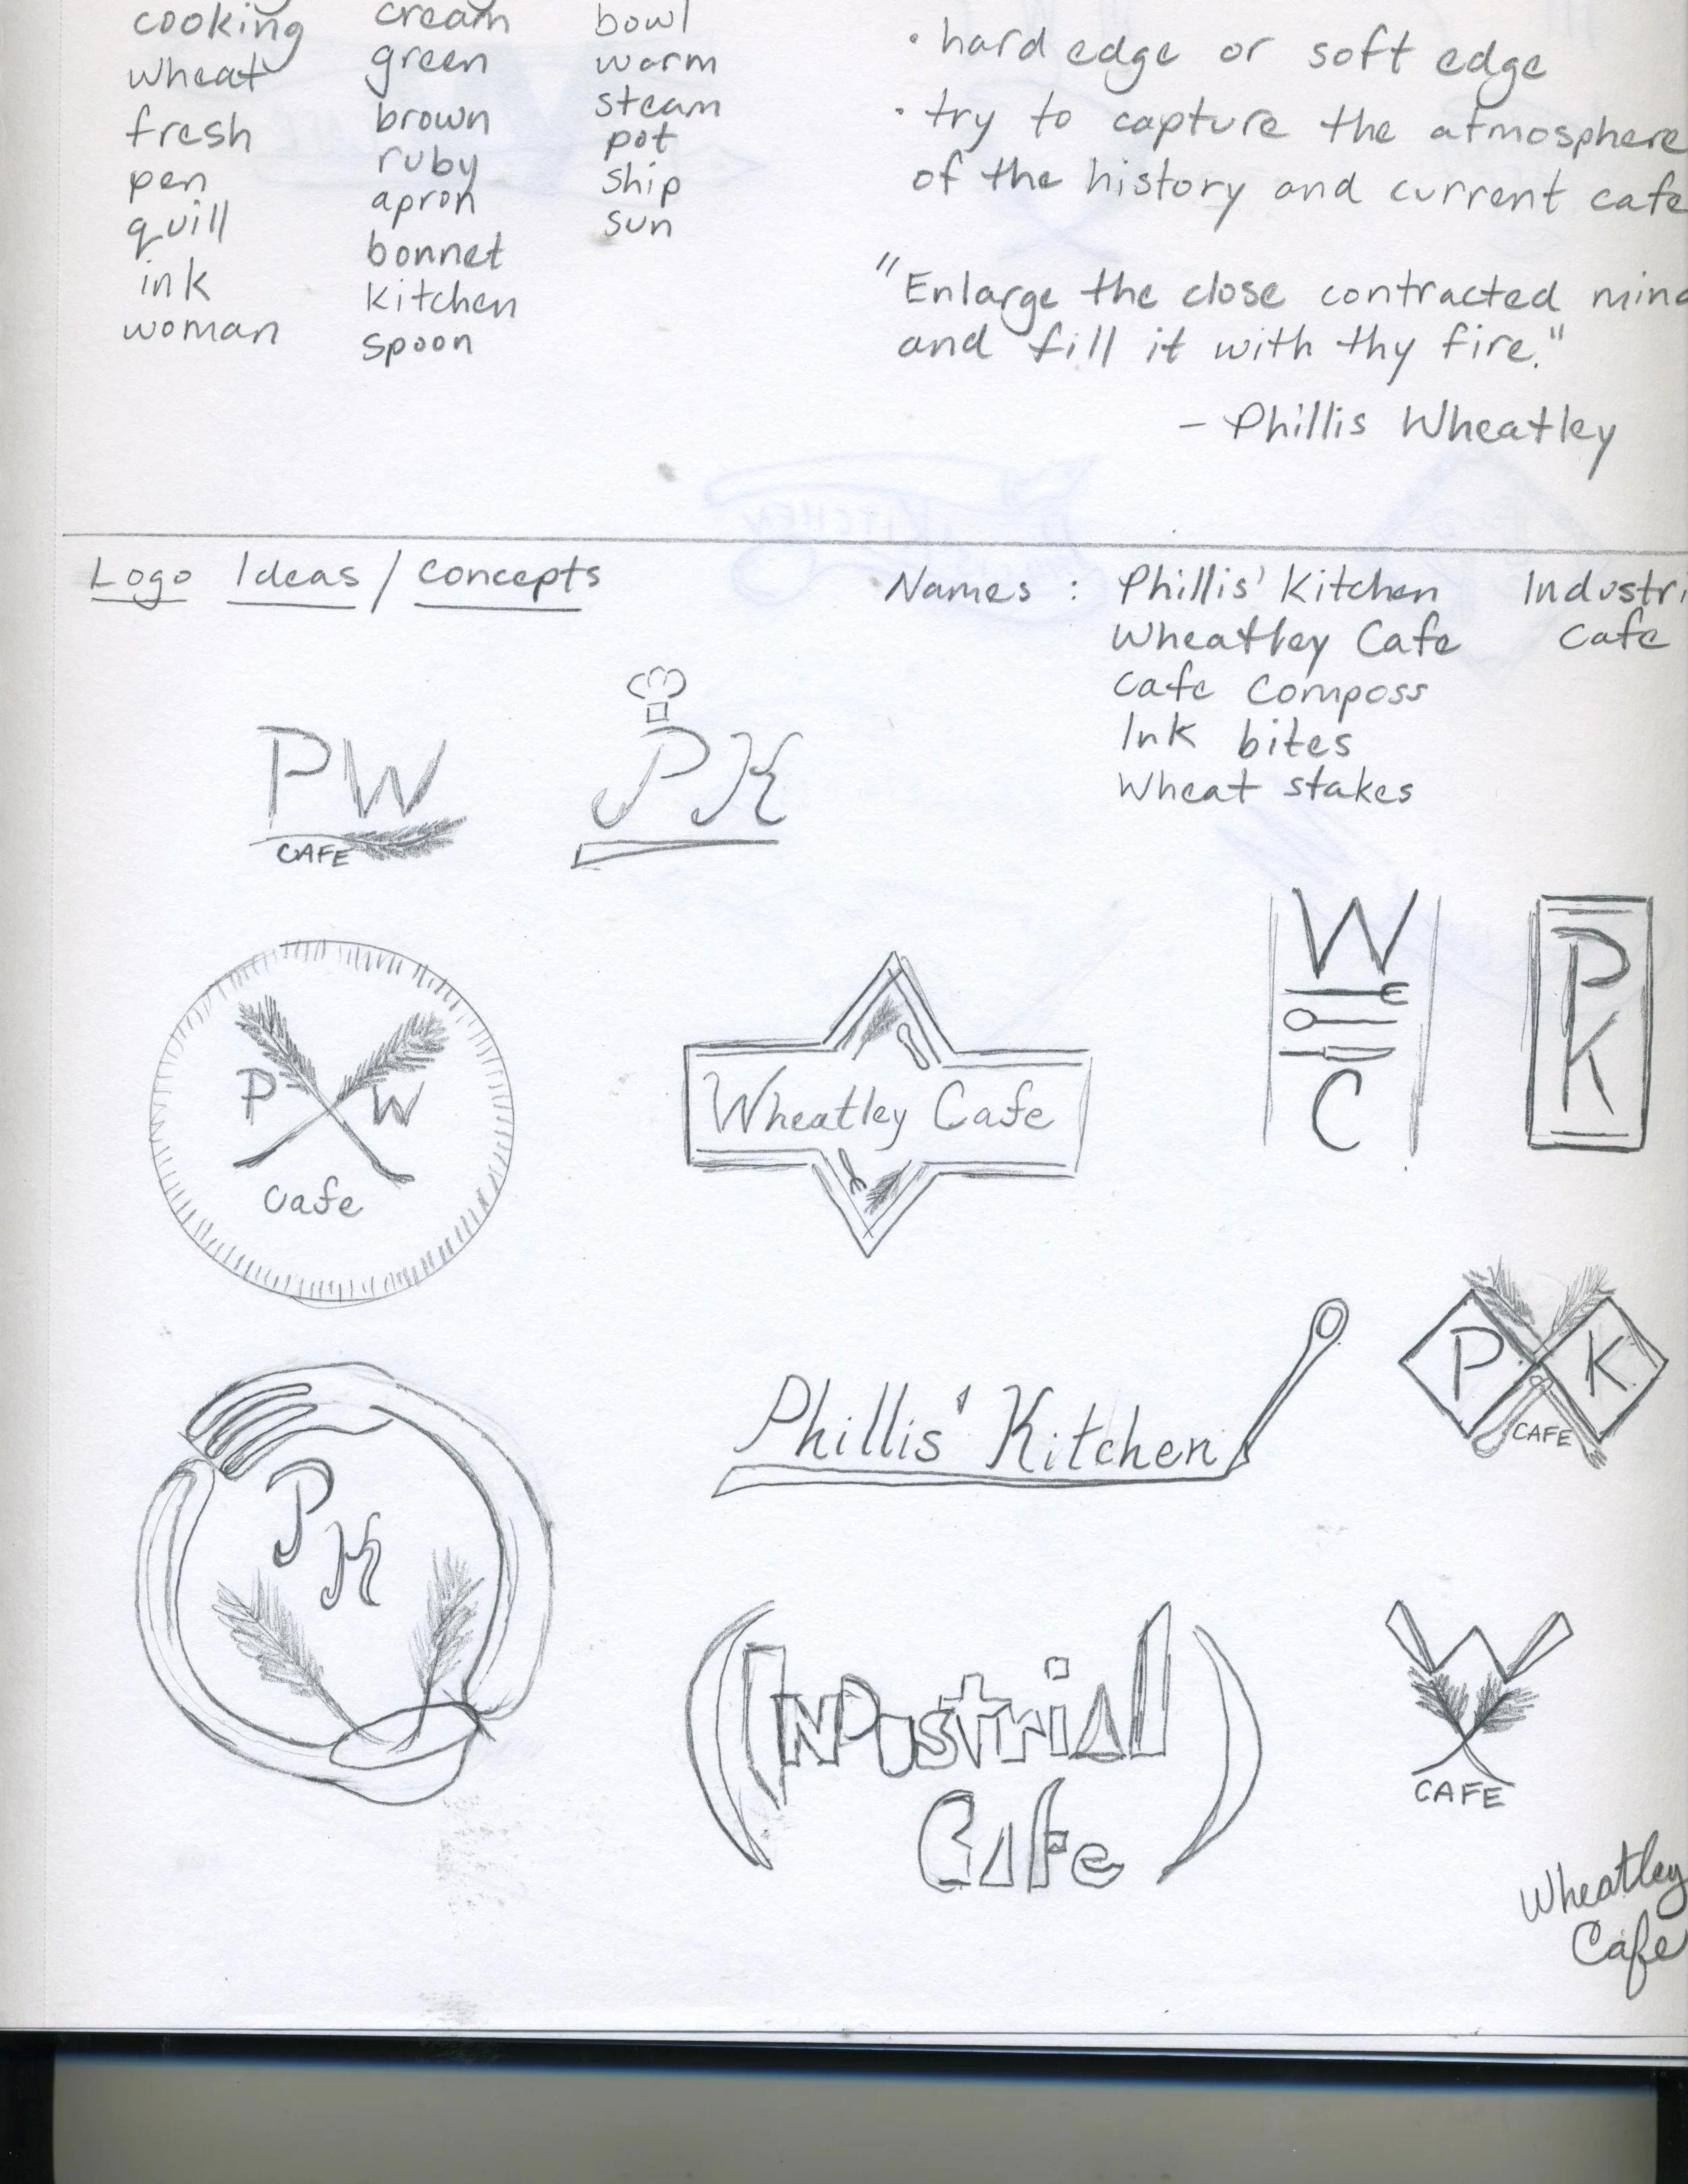 cooking
wheat
fresh
pen
quill
ink
woman
cream
green
brown
ruby
apron
bonnet
kitchen
spoon
bowl
warm
steam
pot
ship
sun
· hard edge or soft edge
· try to capture the atmosphere
of the history and current cafe
"Enlarge the close contracted mind
and fill it with thy fire."
- Phillis Wheatley
Logo Ideas / Concepts
Names : Phillis' Kitchen
Wheatley Cafe
Cafe Composs
Ink bites
Wheat stakes
Industri
Cafe
PW
CAFE
PK
P W
Cafe
Wheatley Cafe
W
C
P
K
P
K
Phillis' Kitchen
P K
CAFE
Industrial
Cafe
W
CAFE
Wheatley
Cafe